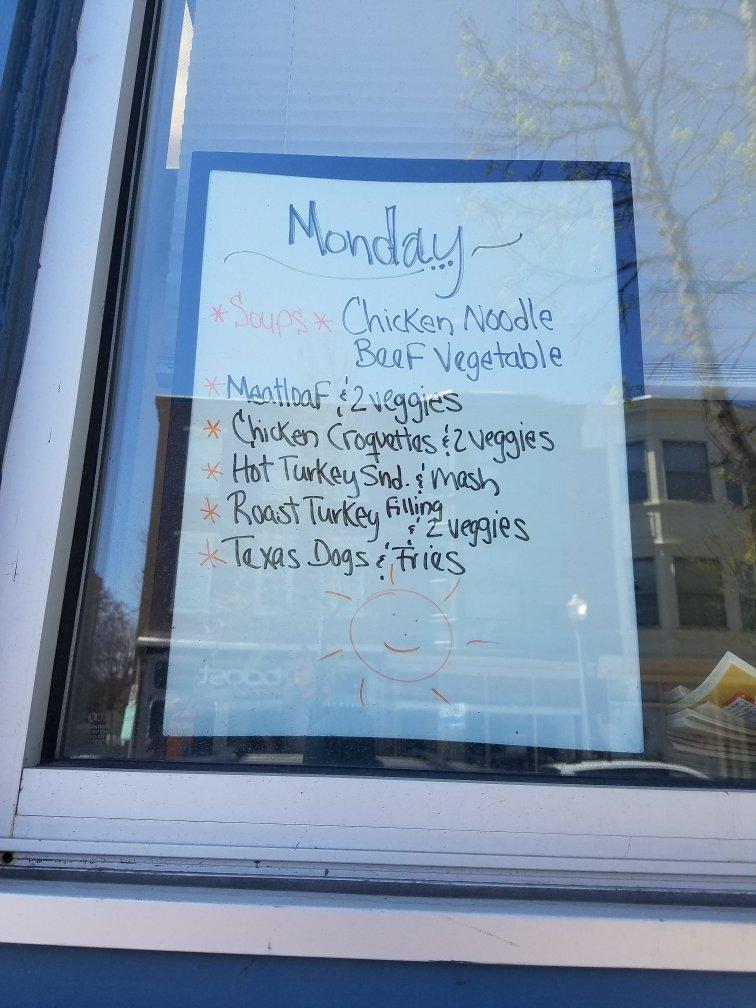 Monday...
*Soups* Chicken Noodle
Beef Vegetable
*Meatloaf & 2 veggies
*Chicken Croquettes & 2 veggies
*Hot Turkey Snd. & Mash
*Roast Turkey Filling & 2 veggies
*Texas Dogs & Fries
boost